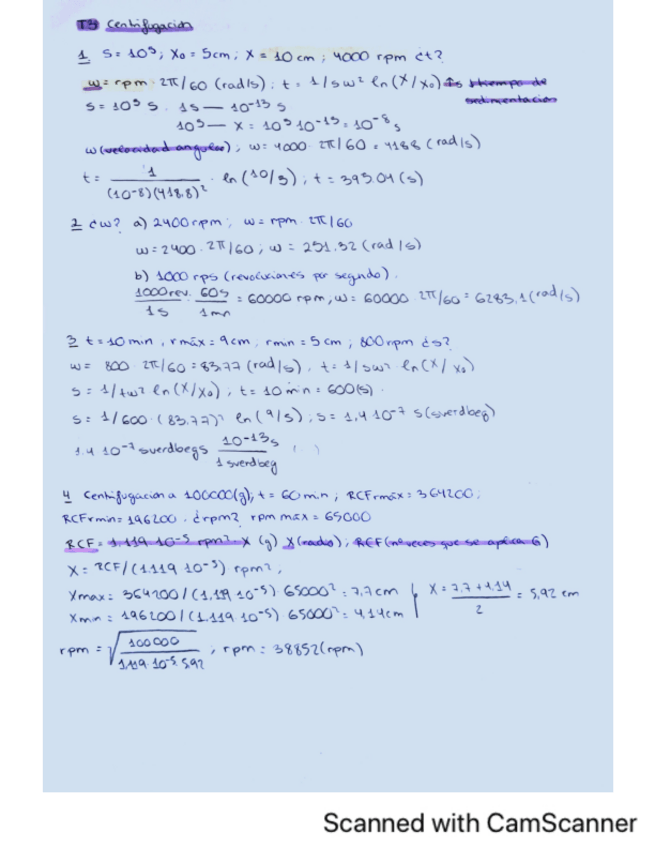 T3 Centrifugacion
1 S = 10^s; X₀ = 5cm; X = 10 cm; 4000 rpm ¿t?
w = rpm · 2π/60 (rad/s); t = 1/sw² ln(X/X₀)
S = 10^s S. 1s — 10^-13 s
10^s — X = 10^s 10^-13 = 10^-8 s
w (velocidad angular); w = 4000 · 2π/60 = 418'8 (rad/s)
t = 1/(10^-8)(418.8)² · ln(10/5); t = 395.04 (s)
2 ¿w? a) 2400 rpm; w = rpm · 2π/60
w = 2400 · 2π/60; w = 251.32 (rad/s)
b) 1000 rps (revoluciones por segundo).
1000 rev./1s · 60s/1mn = 60000 rpm, w = 60000 · 2π/60 = 6283,1 (rad/s)
3 t = 10 min, rmáx = 9cm; rmin = 5 cm; 800 rpm ¿s?
w = 800 · 2π/60 = 83.77 (rad/s). t = 1/sw² ln(X/X₀)
s = 1/tw² ln(X/X₀); t = 10 min = 600(s).
s = 1/600 · (83,77)² ln(9/5); s = 1,4 10^-7 s (sverdbeg)
1.4 10^-7 sverdbegs 10^-13 s/1 sverdbeg ( )
4 Centifugacion a 100000(g); t = 60 min; RCFrmáx = 364200;
RCFrmin = 196200. ¿rpm? rpm máx = 65000
X = RCF/(1.119 10^-5) rpm²,
Xmax = 364200/(1,119 10^-5) 65000² = 7,7cm
Xmin = 196200/(1.119 10^-5) 65000² = 4.14cm
X = 7.7 + 4.14/2 = 5,92 cm
rpm = √100000/1,119 · 10^-5 · 5,92; rpm = 38852 (rpm)
Scanned with CamScanner